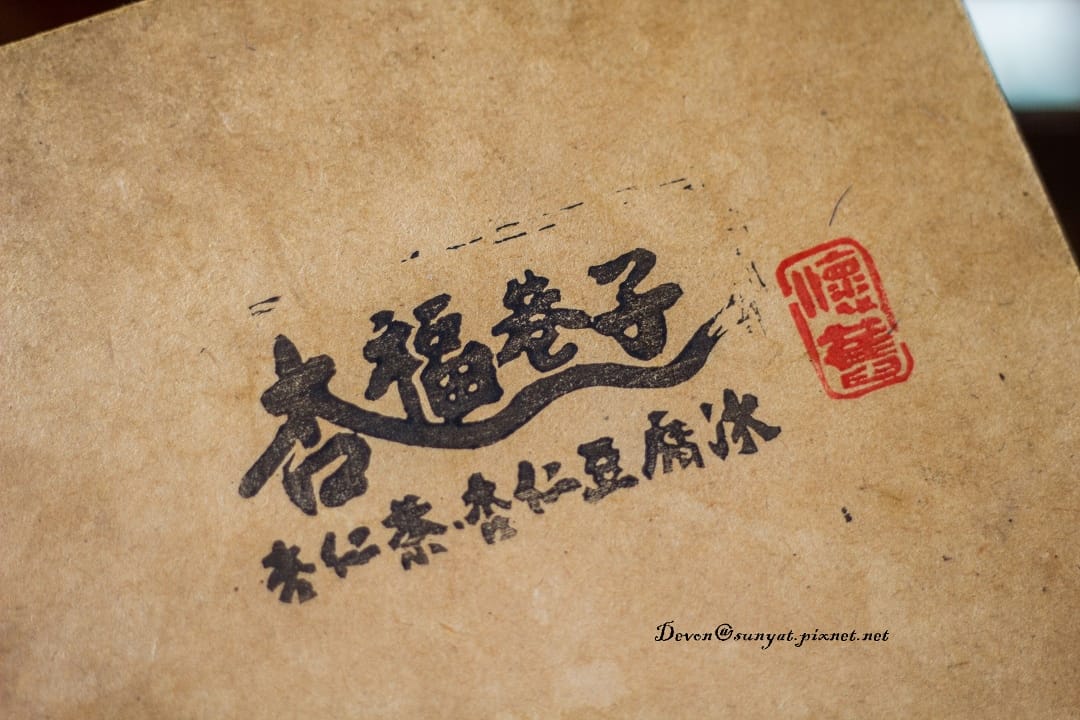 杏福巷子
杏仁茶.杏仁豆腐冰
懷舊
Devon@sunyat.pixnet.net